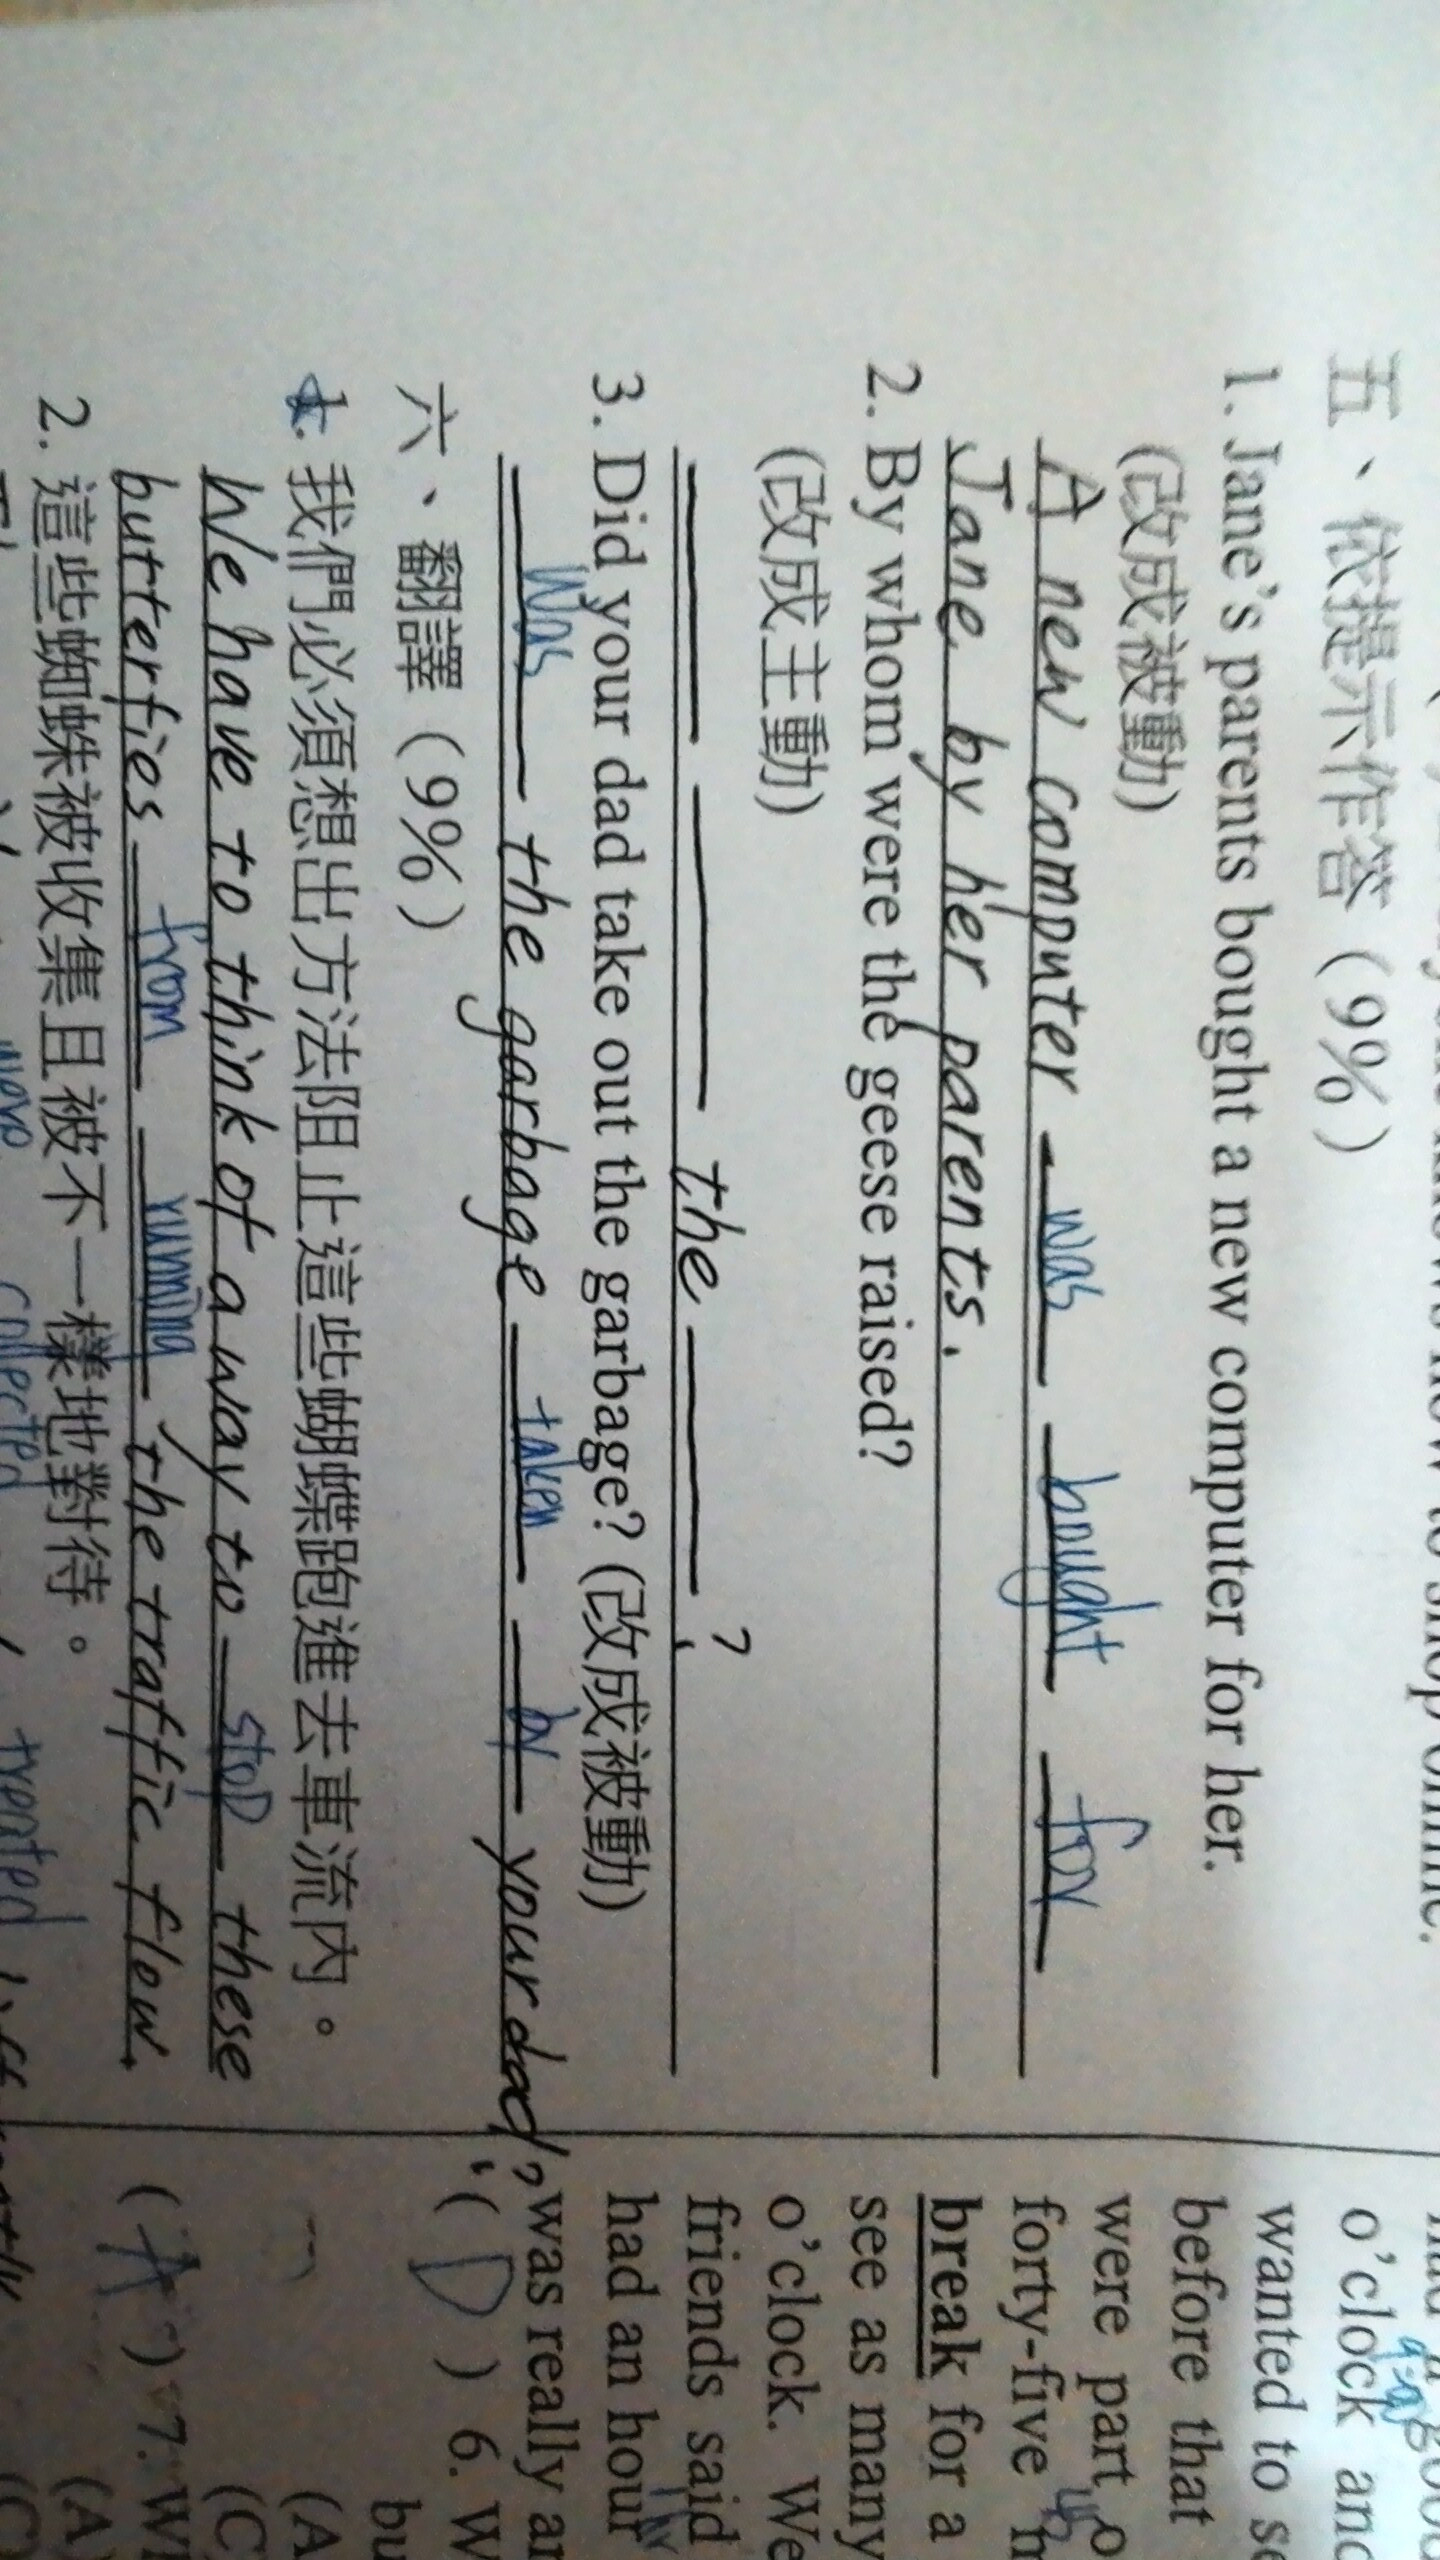 五、依提示作答（9%）
1. Jane's parents bought a new computer for her.
(改成被動)
A new computer was bought for
Jane by her parents.
2. By whom were the geese raised?
(改成主動)
the ?
3. Did your dad take out the garbage? (改成被動)
Was the garbage taken by your dad?
六、翻譯（9%）
1. 我們必須想出方法阻止這些蝴蝶跑進去車流內。
We have to think of a way to stop these
butterfies from running the traffic flow.
2. 這些蜘蛛被收集且被不一樣地對待。
were collected treated
o'clock and
wanted to
before that
were part
forty-five
break for a
see as many
o'clock. We
friends said
had an hour
was really
( D ) 6.
( A ) 7.
(A)